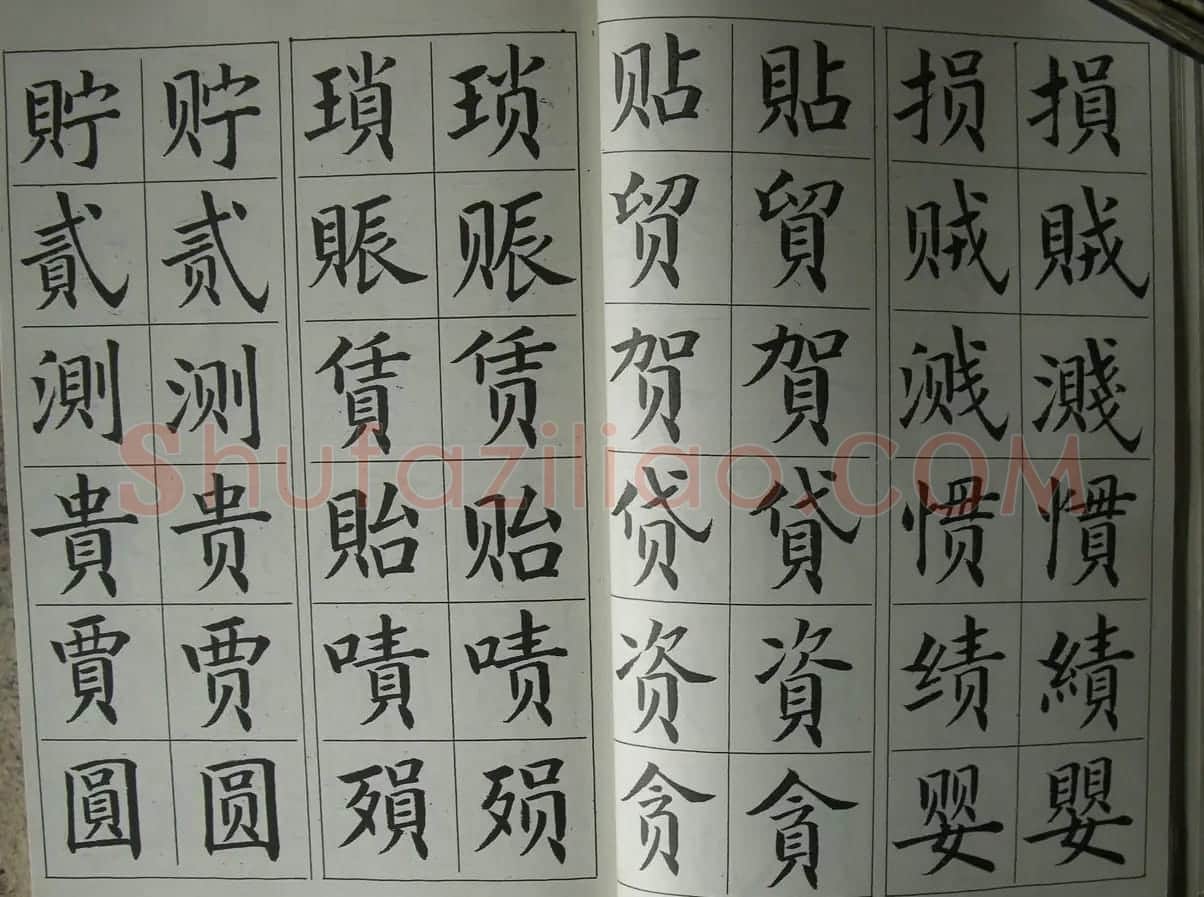 貯 贮 瑣 琐 贴 貼 损 損
貳 贰 賬 账 贸 貿 贼 賊
測 测 賃 赁 贺 賀 溅 濺
貴 贵 貽 贻 贷 貸 惯 慣
賈 贾 嘖 啧 资 資 绩 績
圓 圆 殞 殒 贪 貪 婴 嬰
Shufaziliao.COM